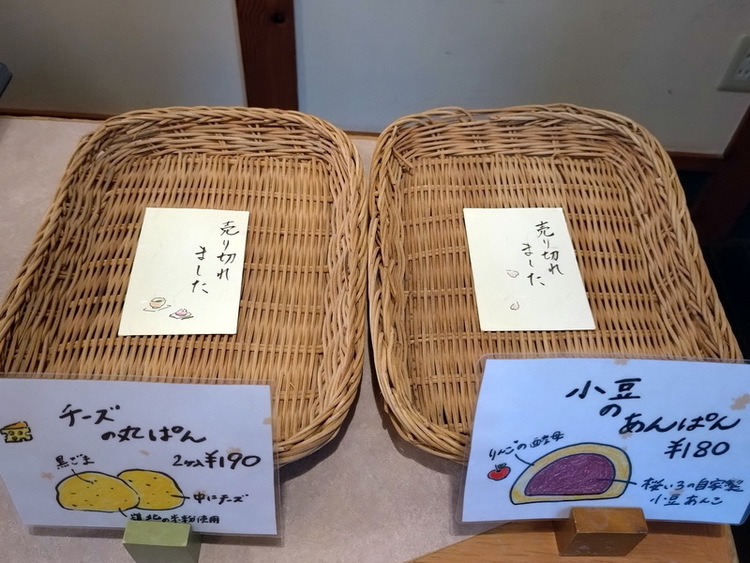 売り切れ
ました
売り切れ
ました
チーズ
の丸ぱん
2ヶ入¥190
黒ごま
中にチーズ
道北の米粉使用
小豆
の
あんぱん
¥180
りんごの酵母
桜いろの自家製
小豆あんこ